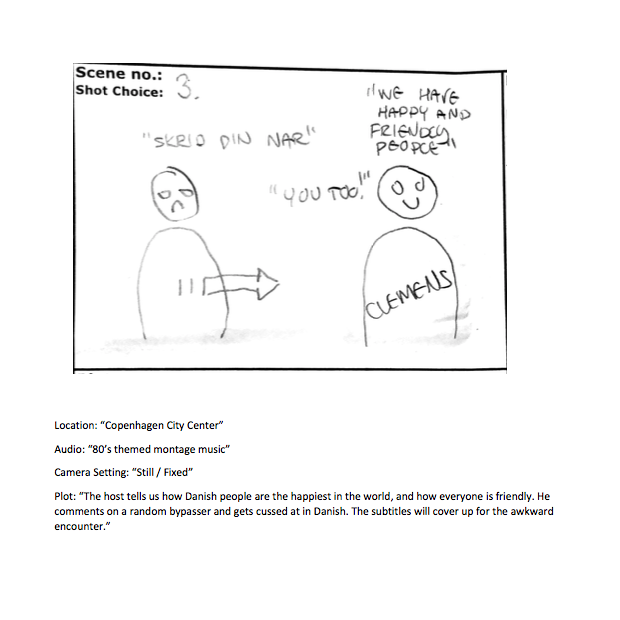 Scene no.:
Shot Choice: 3.
"WE HAVE
HAPPY AND
FRIENDLY
PEOPLE"
"SKRID DIN NAR"
"YOU TOO!"
CLEMENS
Location: “Copenhagen City Center”
Audio: “80’s themed montage music”
Camera Setting: “Still / Fixed”
Plot: “The host tells us how Danish people are the happiest in the world, and how everyone is friendly. He
comments on a random bypasser and gets cussed at in Danish. The subtitles will cover up for the awkward
encounter.”